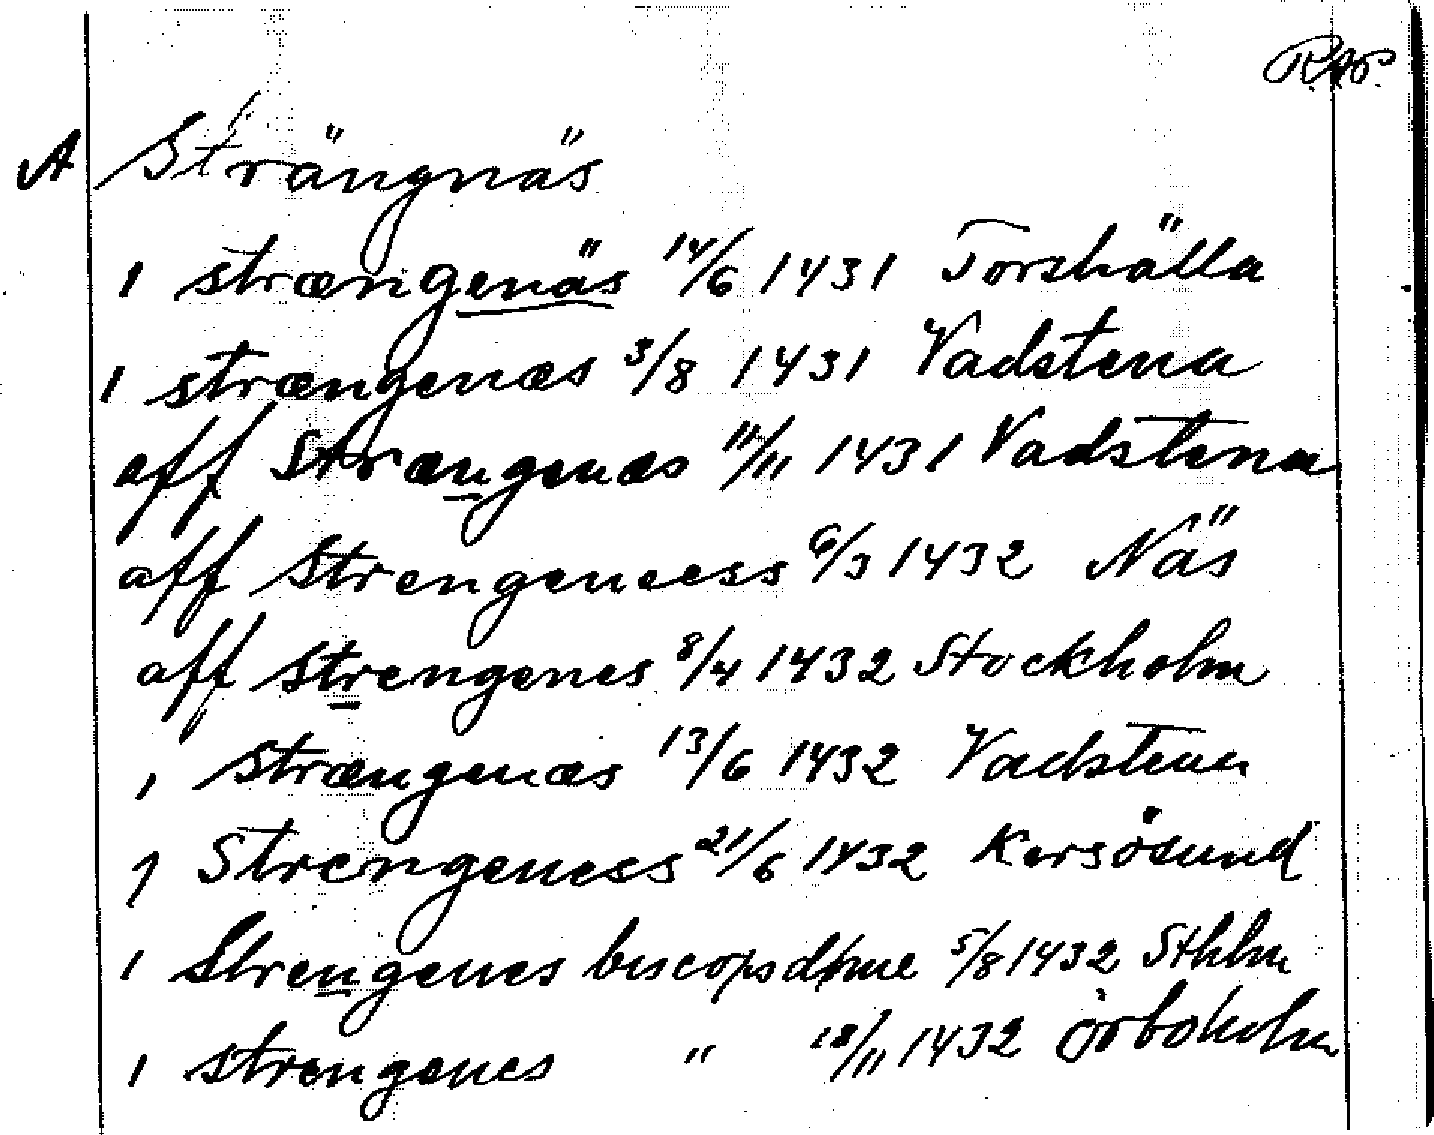 RAP.
A Strängnäs
1 strængenäs 14/6 1431 Torshälla
1 strængenæs 3/8 1431 Vadstena
aff Strængenæs 11/11 1431 Vadstena
aff Strengeness 6/3 1432 Näs
aff Strengenes 8/4 1432 Stockholm
1 Strængenæs 13/6 1432 Vadstena
j Strengeness 21/6 1432 Korsösund
1 Strengenes biscopsdöme 5/8 1432 Sthlm
1 strengenes " 18/11 1432 Örboholm